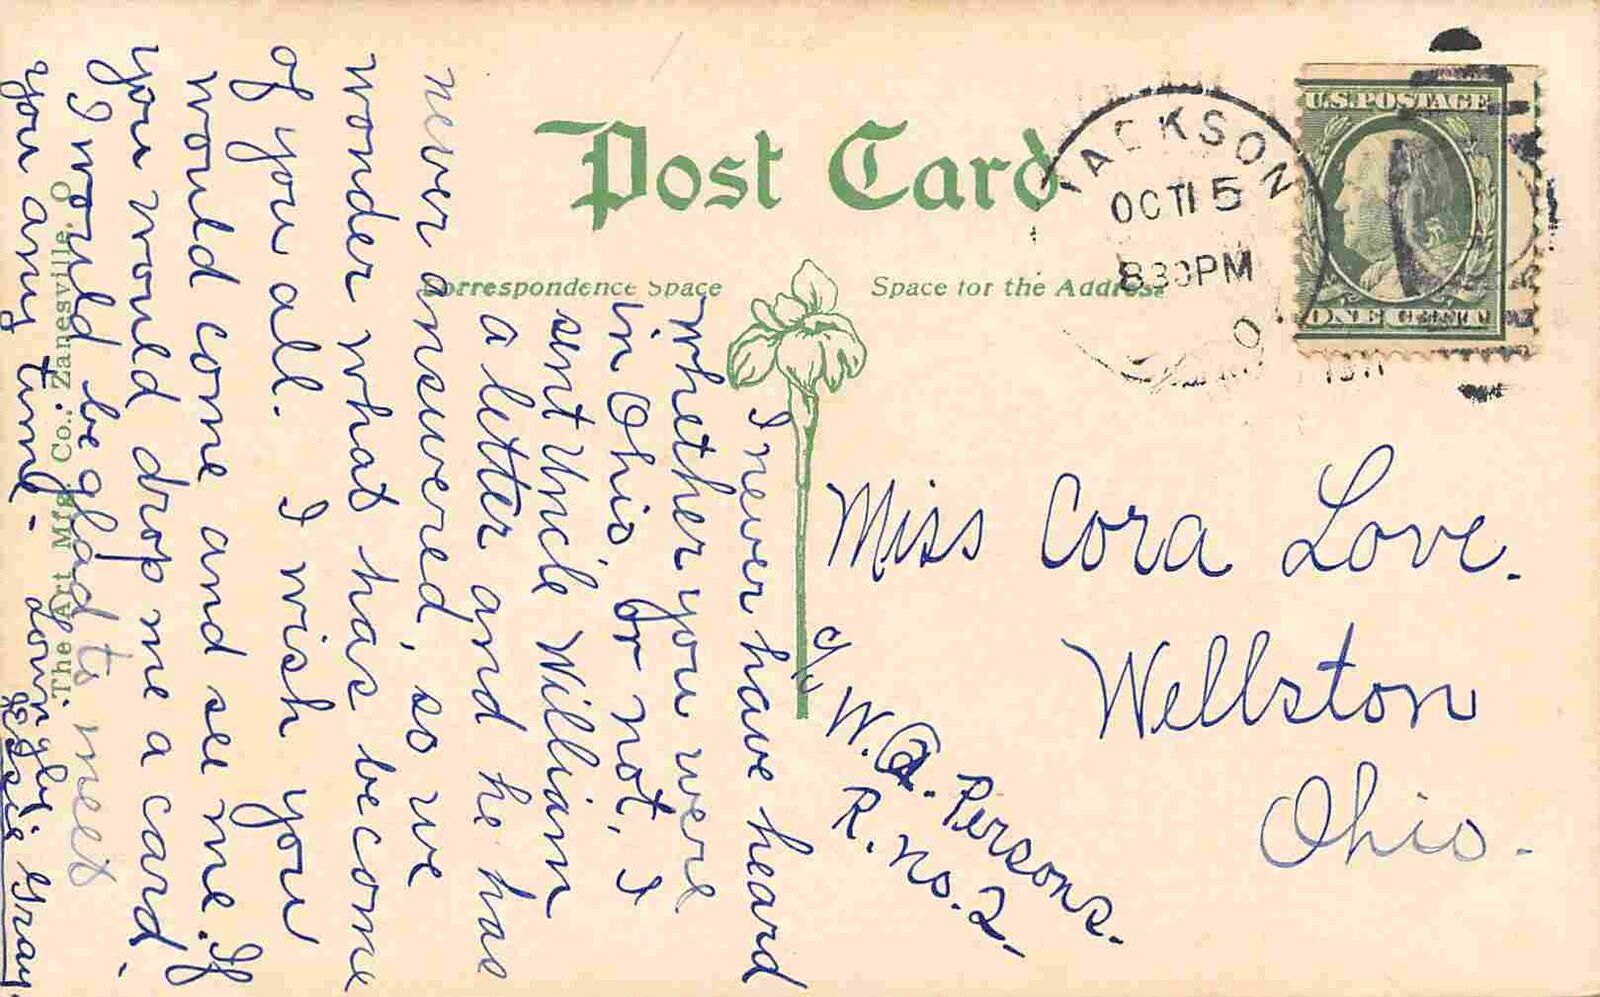 Post Card
Correspondence Space
Space for the Address
JACKSON
OCT 15
830PM
O.
1911
U.S. POSTAGE
ONE CENT
Miss Cora Love.
Wellston
Ohio.
c/o W. A. Persons.
R. no. 2.
I never have heard
whether you were
in Ohio, or not, I
sent Uncle William
a letter and he has
never answered, so we
wonder what has become
of you all. I wish you
would come and see me. If
you would drop me a card.
I would be glad to meet
you any time.
Lovingly,
Gray.
The Art Mfg. Co., Zanesville, O